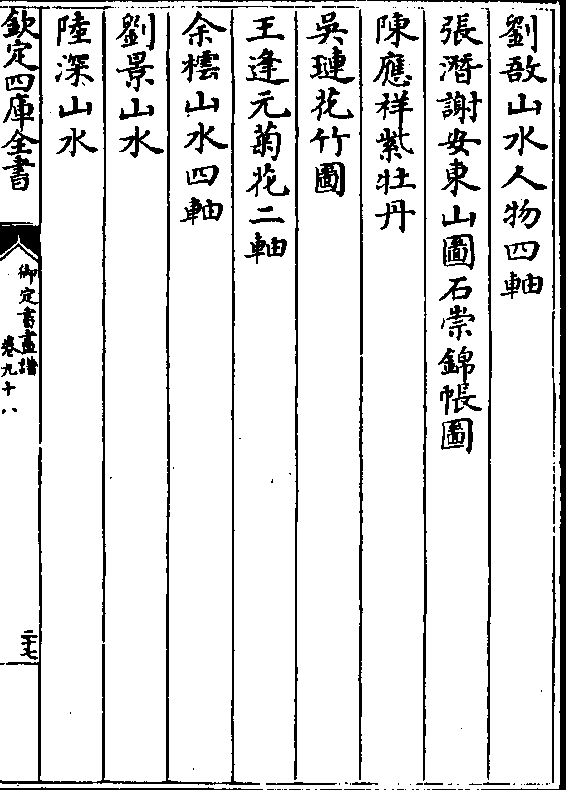 劉敔山水人物四軸
張潛謝安東山圖石崇錦帳圖
陳應祥紫牡丹
吳璉花竹圖
王逢元菊花二軸
余橒山水四軸
劉景山水
陸深山水
欽定四庫全書
御定書畫譜
卷九十八
二十七